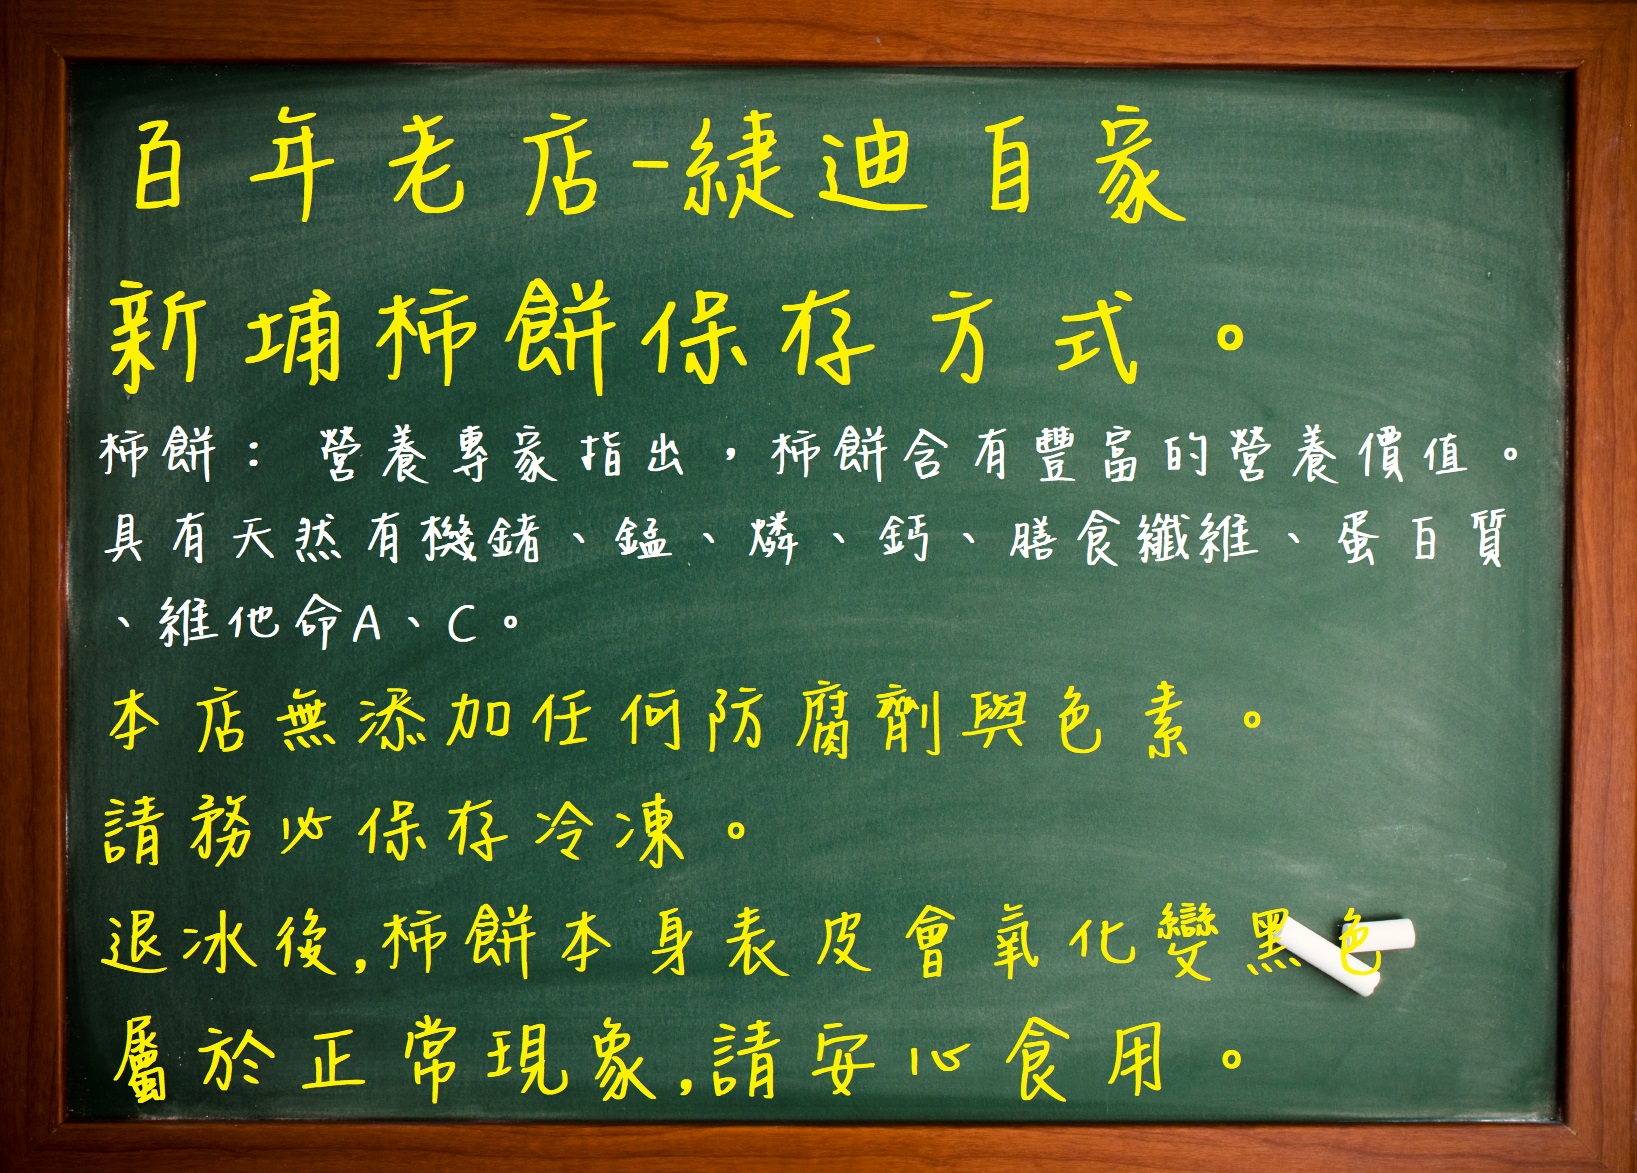 百年老店-緁迪自家
新埔柿餅保存方式。
柿餅： 營養專家指出，柿餅含有豐富的營養價值。
具有天然有機鍺、錳、燐、鈣、膳食纖維、蛋白質
、維他命A、C。
本店無添加任何防腐劑與色素。
請務必保存冷凍。
退冰後,柿餅本身表皮會氧化變黑色
屬於正常現象,請安心食用。